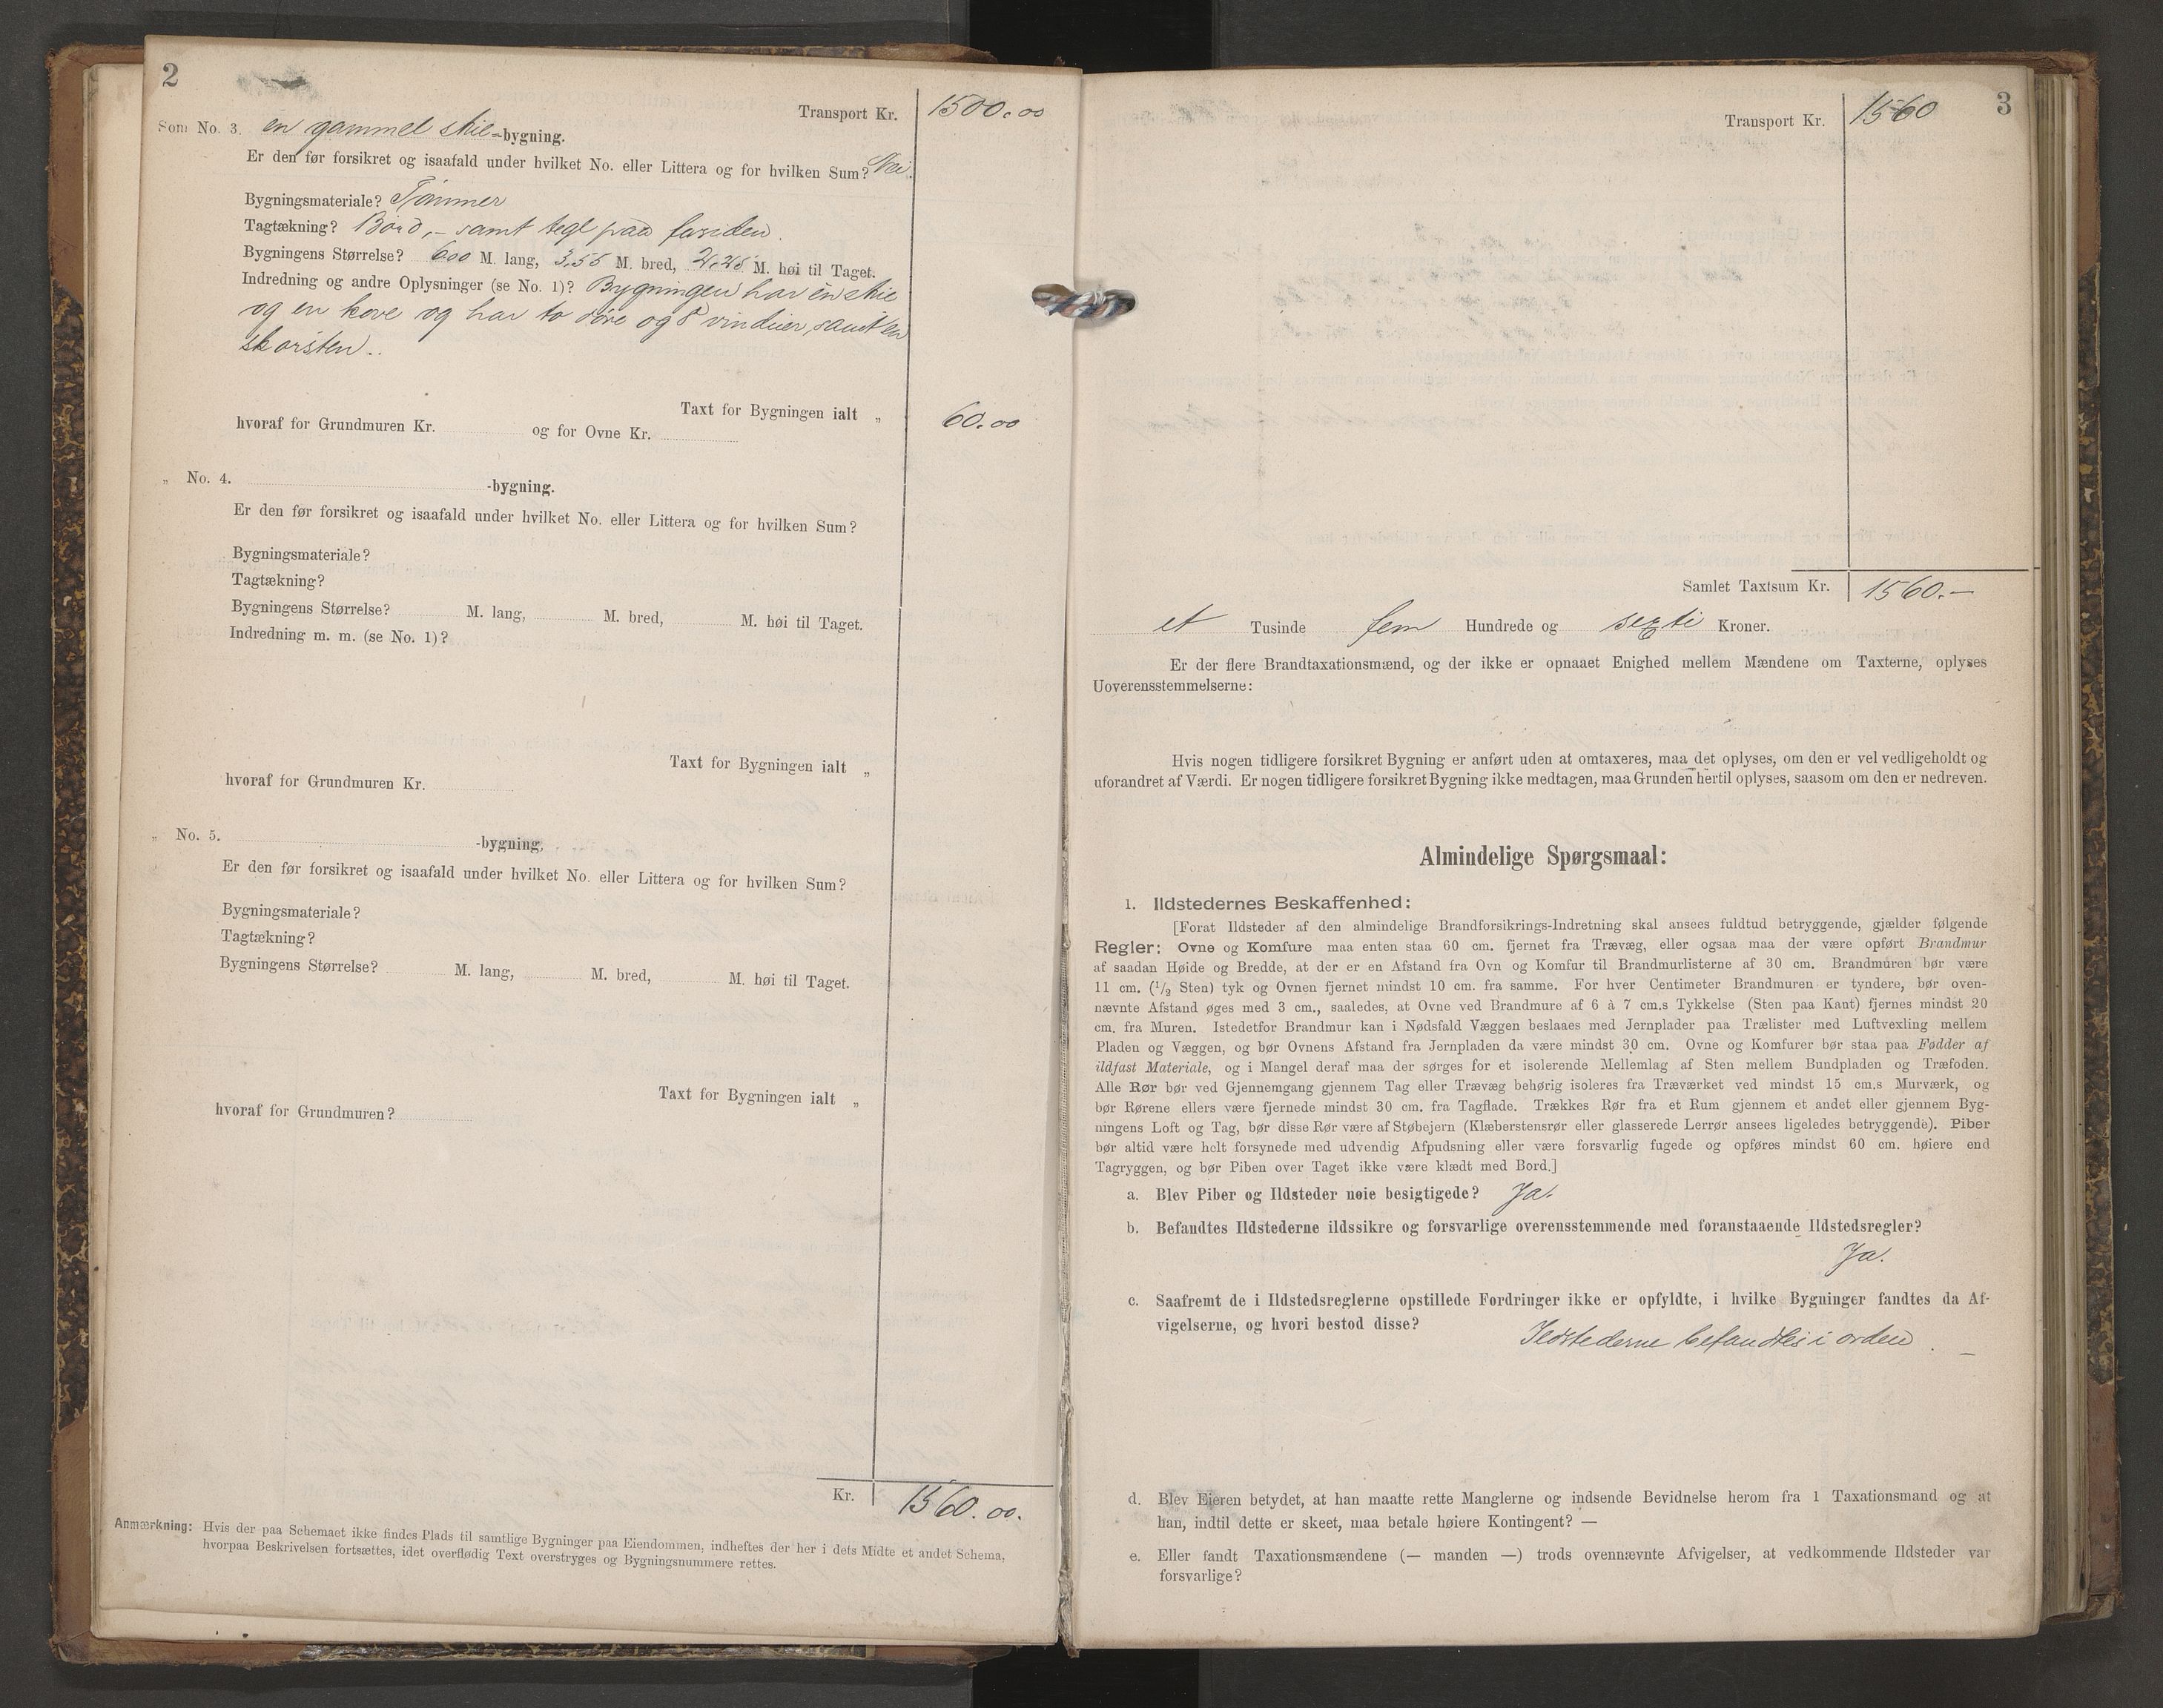 2
Transport Kr. 1500.00
Som No. 3. en gammel stue-bygning.
Er den før forsikret og isaafald under hvilket No. eller Littera og for hvilken Sum? Nei.
Bygningsmateriale? Tømmer
Tagtækning? Bord, - samt tegl paa forsiden.
Bygningens Størrelse? 6.00 M. lang, 3,55 M. bred, 2,25 M. høi til Taget.
Indredning og andre Oplysninger (se No. 1)? Bygningen har en stue
og en kove og har to døre og vinduer, samt en
skorsten..
Taxt for Bygningen ialt „ 60.00
hvoraf for Grundmuren Kr. og for Ovne Kr.
„ No. 4. -bygning.
Er den før forsikret og isaafald under hvilket No. eller Littera og for hvilken Sum?
Bygningsmateriale?
Tagtækning?
Bygningens Størrelse? M. lang, M. bred, M. høi til Taget.
Indredning m. m. (se No. 1)?
Taxt for Bygningen ialt „
hvoraf for Grundmuren Kr.
„ No. 5. -bygning.
Er den før forsikret og isaafald under hvilket No. eller Littera og for hvilken Sum?
Bygningsmateriale?
Tagtækning?
Bygningens Størrelse? M. lang, M. bred, M. høi til Taget.
Taxt for Bygningen ialt „
hvoraf for Grundmuren?
Kr. 1560.00.
Anmærkning: Hvis der paa Schemaet ikke findes Plads til samtlige Bygninger paa Eiendommen, indheftes der her i dets Midte et andet Schema,
hvorpaa Beskrivelsen fortsættes, idet overflødig Text overstryges og Bygningsnummere rettes.
3
Transport Kr. 1560
Samlet Taxtsum Kr. 1560.-
et Tusinde fem Hundrede og sexti Kroner.
Er der flere Brandtaxationsmænd, og der ikke er opnaaet Enighed mellem Mændene om Taxterne, oplyses
Uoverensstemmelserne:
Hvis nogen tidligere forsikret Bygning er anført uden at omtaxeres, maa det oplyses, om den er vel vedligeholdt og
uforandret af Værdi. Er nogen tidligere forsikret Bygning ikke medtagen, maa Grunden hertil oplyses, saasom om den er nedreven.
Almindelige Spørgsmaal:
1. Ildstedernes Beskaffenhed:
[Forat Ildsteder af den almindelige Brandforsikrings-Indretning skal ansees fuldtud betryggende, gjælder følgende
Regler: Ovne og Komfure maa enten staa 60 cm. fjernet fra Trævæg, eller ogsaa maa der være opført Brandmur
af saadan Høide og Bredde, at der er en Afstand fra Ovn og Komfur til Brandmurlisterne af 30 cm. Brandmuren bør være
11 cm. (1/2 Sten) tyk og Ovnen fjernet mindst 10 cm. fra samme. For hver Centimeter Brandmuren er tyndere, bør oven-
nævnte Afstand øges med 3 cm., saaledes, at Ovne ved Brandmure af 6 à 7 cm.s Tykkelse (Sten paa Kant) fjernes mindst 20
cm. fra Muren. Istedetfor Brandmur kan i Nødsfald Væggen beslaaes med Jernplader paa Trælister med Luftvexling mellem
Pladen og Væggen, og bør Ovnens Afstand fra Jernpladen da være mindst 30 cm. Ovne og Komfurer bør staa paa Fødder af
ildfast Materiale, og i Mangel deraf maa der sørges for et isolerende Mellemlag af Sten mellem Bundpladen og Træfoden.
Alle Rør bør ved Gjennemgang gjennem Tag eller Trævæg behørig isoleres fra Træværket ved mindst 15 cm.s Murværk, og
bør Rørene ellers være fjernede mindst 30 cm. fra Tagflade. Trækkes Rør fra et Rum gjennem et andet eller gjennem Byg-
ningens Loft og Tag, bør disse Rør være af Støbejern (Klæberstensrør eller glasserede Lerrør ansees ligeledes betryggende). Piber
bør altid være helt forsynede med udvendig Afpudsning eller være forsvarlig fugede og opføres mindst 60 cm. høiere end
Tagryggen, og bør Piben over Taget ikke være klædt med Bord.]
a. Blev Piber og Ildsteder nøie besigtigede? Ja.
b. Befandtes Ildstederne ildssikre og forsvarlige overensstemmende med foranstaaende Ildstedsregler?
Ja.
c. Saafremt de i Ildstedsreglerne opstillede Fordringer ikke er opfyldte, i hvilke Bygninger fandtes da Af-
vigelserne, og hvori bestod disse?
Ildstederne befandtes i orden. -
d. Blev Eieren betydet, at han maatte rette Manglerne og indsende Bevidnelse herom fra 1 Taxationsmand og at
han, indtil dette er skeet, maa betale høiere Kontingent? —
e. Eller fandt Taxationsmændene (— manden —) trods ovennævnte Afvigelser, at vedkommende Ildsteder var
forsvarlige?